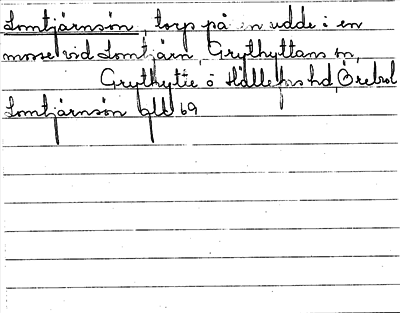 Lomtjärnsön, torp på en udde i en
mosse vid Lomtjärn, Grythyttans sn,
Grythytte o Hällefors hd, Örebro l
Lomtjärnsön 69